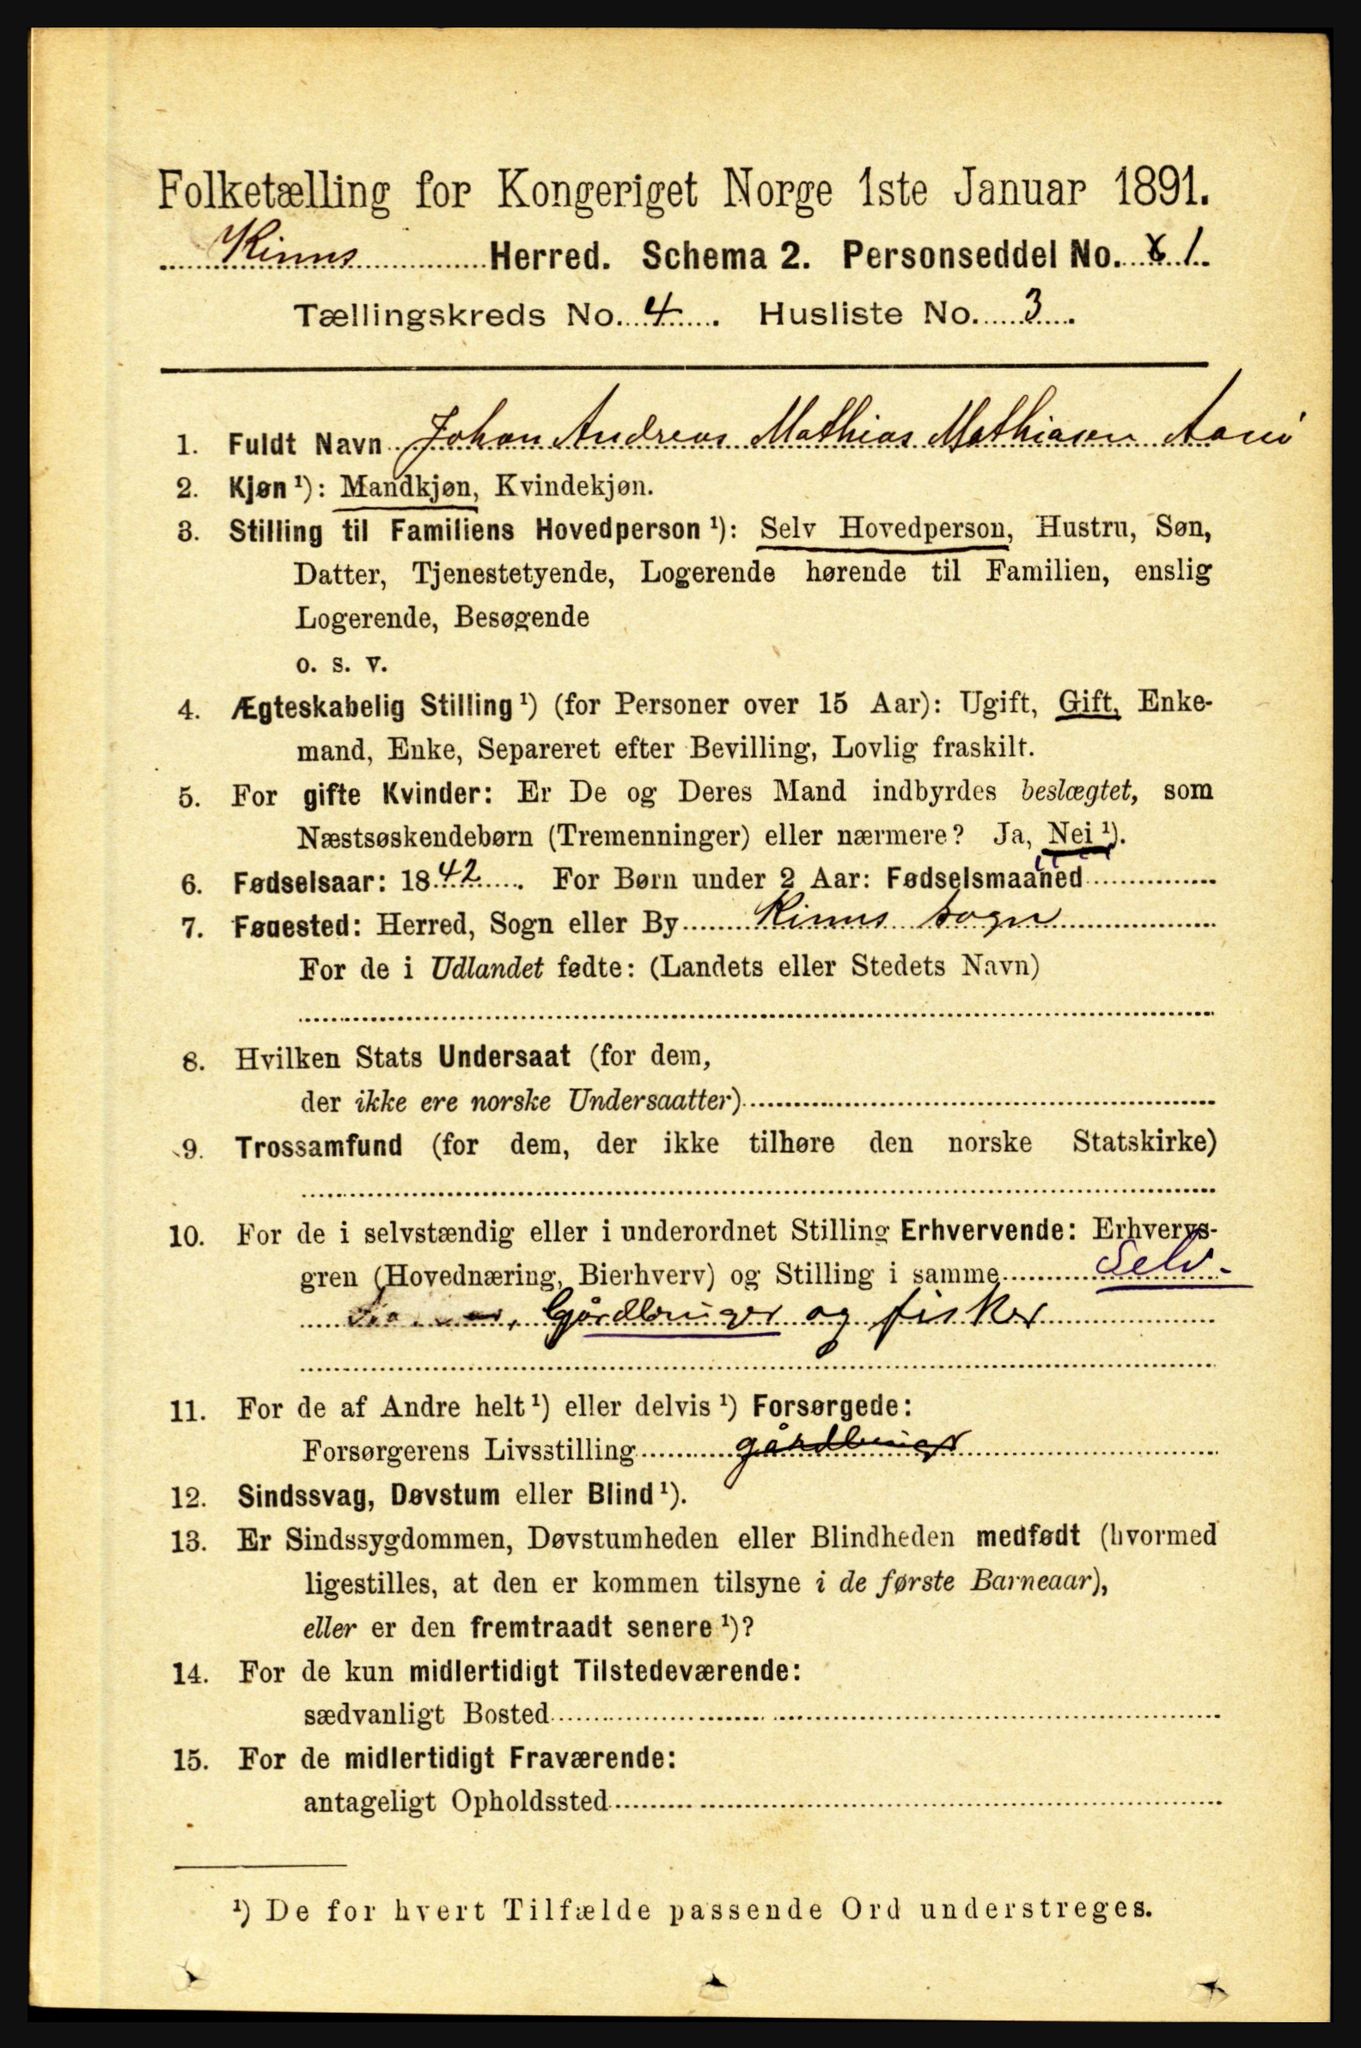 Folketælling for Kongeriget Norge 1ste Januar 1891.
Kinns Herred. Schema 2. Personseddel No. 1.
Tællingskreds No. 4. Husliste No. 3.
1. Fuldt Navn Johan Andreas Mathias Mathiasen
2. Kjøn ¹): Mandkjøn, Kvindekjøn.
3. Stilling til Familiens Hovedperson ¹): Selv Hovedperson, Hustru, Søn,
Datter, Tjenestetyende, Logerende hørende til Familien, enslig
Logerende, Besøgende
o. s. v.
4. Ægteskabelig Stilling ¹) (for Personer over 15 Aar): Ugift, Gift, Enke-
mand, Enke, Separeret efter Bevilling, Lovlig fraskilt.
5. For gifte Kvinder: Er De og Deres Mand indbyrdes beslægtet, som
Næstsøskendebørn (Tremenninger) eller nærmere? Ja, Nei ¹).
6. Fødselsaar: 1842. For Børn under 2 Aar: Fødselsmaaned
7. Føuested: Herred, Sogn eller By Kinns sogn
For de i Udlandet fødte: (Landets eller Stedets Navn)
8. Hvilken Stats Undersaat (for dem,
der ikke ere norske Undersaatter)
9. Trossamfund (for dem, der ikke tilhøre den norske Statskirke)
10. For de i selvstændig eller i underordnet Stilling Erhvervende: Erhvervs-
gren (Hovednæring, Bierhverv) og Stilling i samme Selv-
Gårdbruger og fisker
11. For de af Andre helt ¹) eller delvis ¹) Forsørgede:
Forsørgerens Livsstilling gårdbruger
12. Sindssvag, Døvstum eller Blind ¹).
13. Er Sindssygdommen, Døvstumheden eller Blindheden medfødt (hvormed
ligestilles, at den er kommen tilsyne i de første Barneaar),
eller er den fremtraadt senere ¹)?
14. For de kun midlertidigt Tilstedeværende:
sædvanligt Bosted
15. For de midlertidigt Fraværende:
antageligt Opholdssted
¹) De for hvert Tilfælde passende Ord understreges.